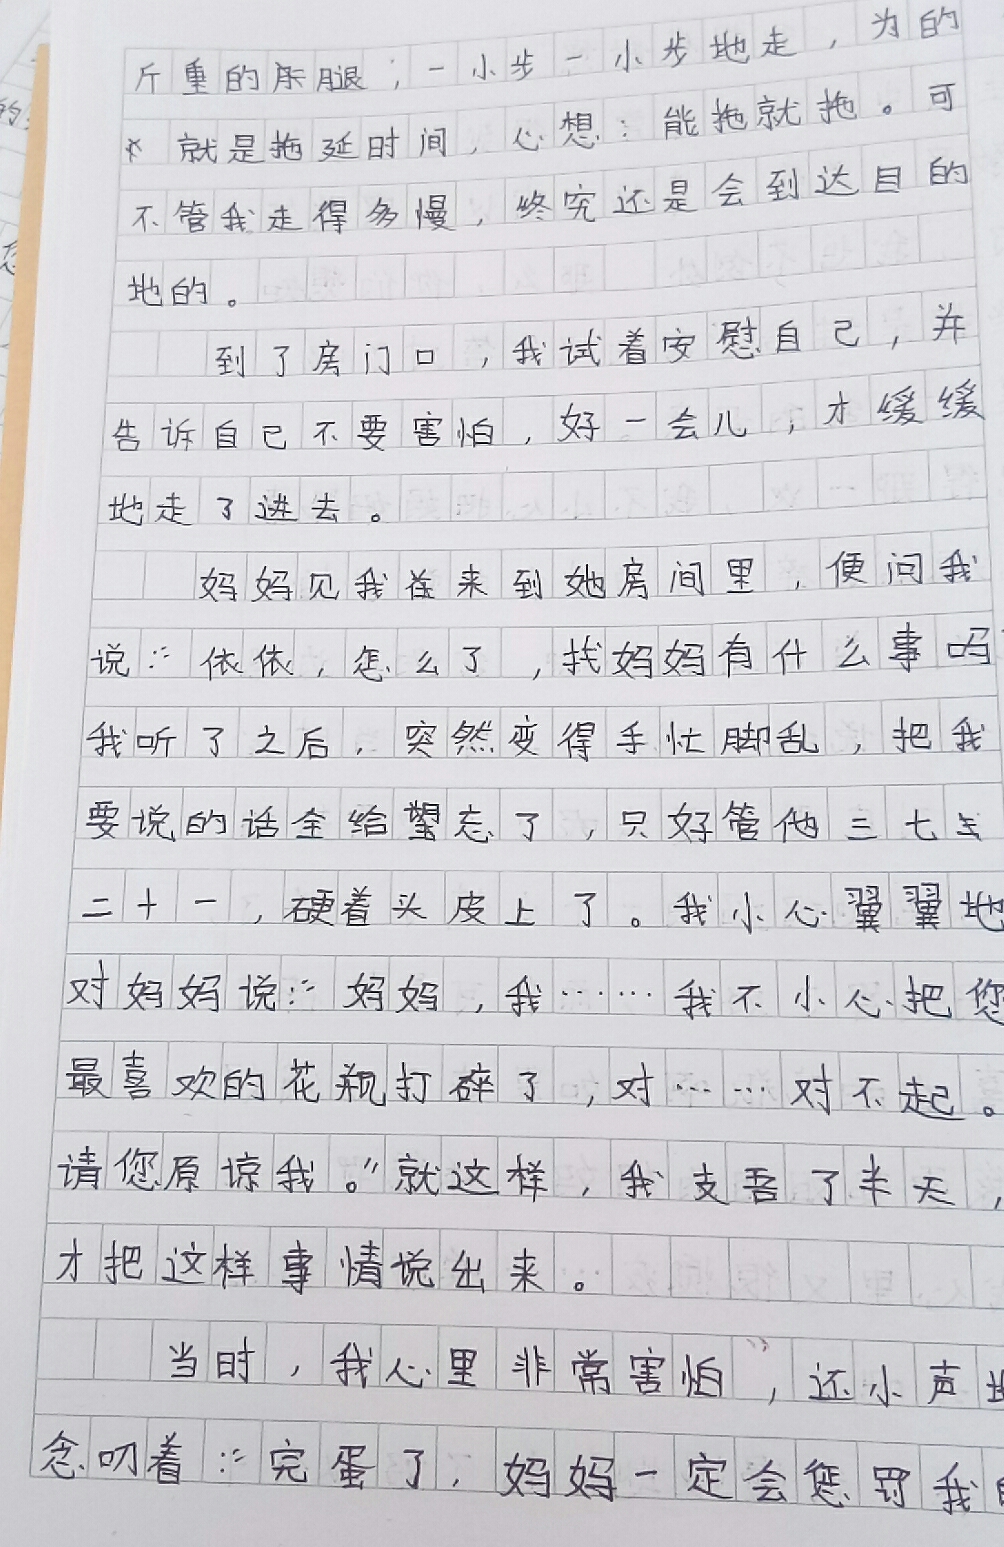 斤重的腿，一小步一小步地走，为的
就是拖延时间，心想：能拖就拖。可
不管我走得多慢，终究还是会到达目的
地的。
到了房门口，我试着安慰自己，并
告诉自己不要害怕，好一会儿，才缓缓
地走了进去。
妈妈见我来到她房间里，便问我
说：“依依，怎么了，找妈妈有什么事吗
我听了之后，突然变得手忙脚乱，把我
要说的话全给望忘了，只好管他三七
二十一，硬着头皮上了。我小心翼翼地
对妈妈说：“妈妈，我……我不小心把您
最喜欢的花瓶打碎了，对……对不起。
请您原谅我。”就这样，我支吾了半天，
才把这样事情说出来。
当时，我心里非常害怕，还小声地
念叨着：“完蛋了，妈妈一定会惩罚我